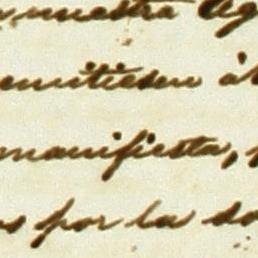 nuestra Ag
emitiesen á
manifiesta,
s por la so